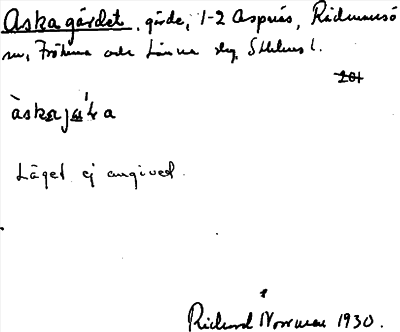 Askagärdet, gärde, 1-2 Aspnäs, Ridmansö
sn, Frötuna och Länna slg, Sthlms l.
201
Läget ej angivet.
Richard Norrman 1930.